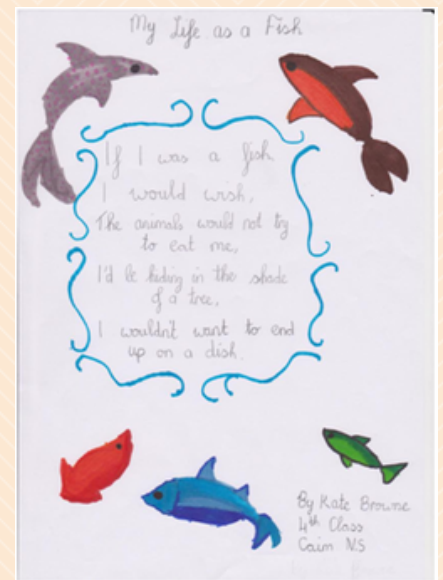 My Life as a Fish
If I was a fish
I would wish,
The animals would not try
to eat me,
I'd be hiding in the shade
of a tree,
I wouldn't want to end
up on a dish.
By Kate Browne
4th Class
Caim N.S